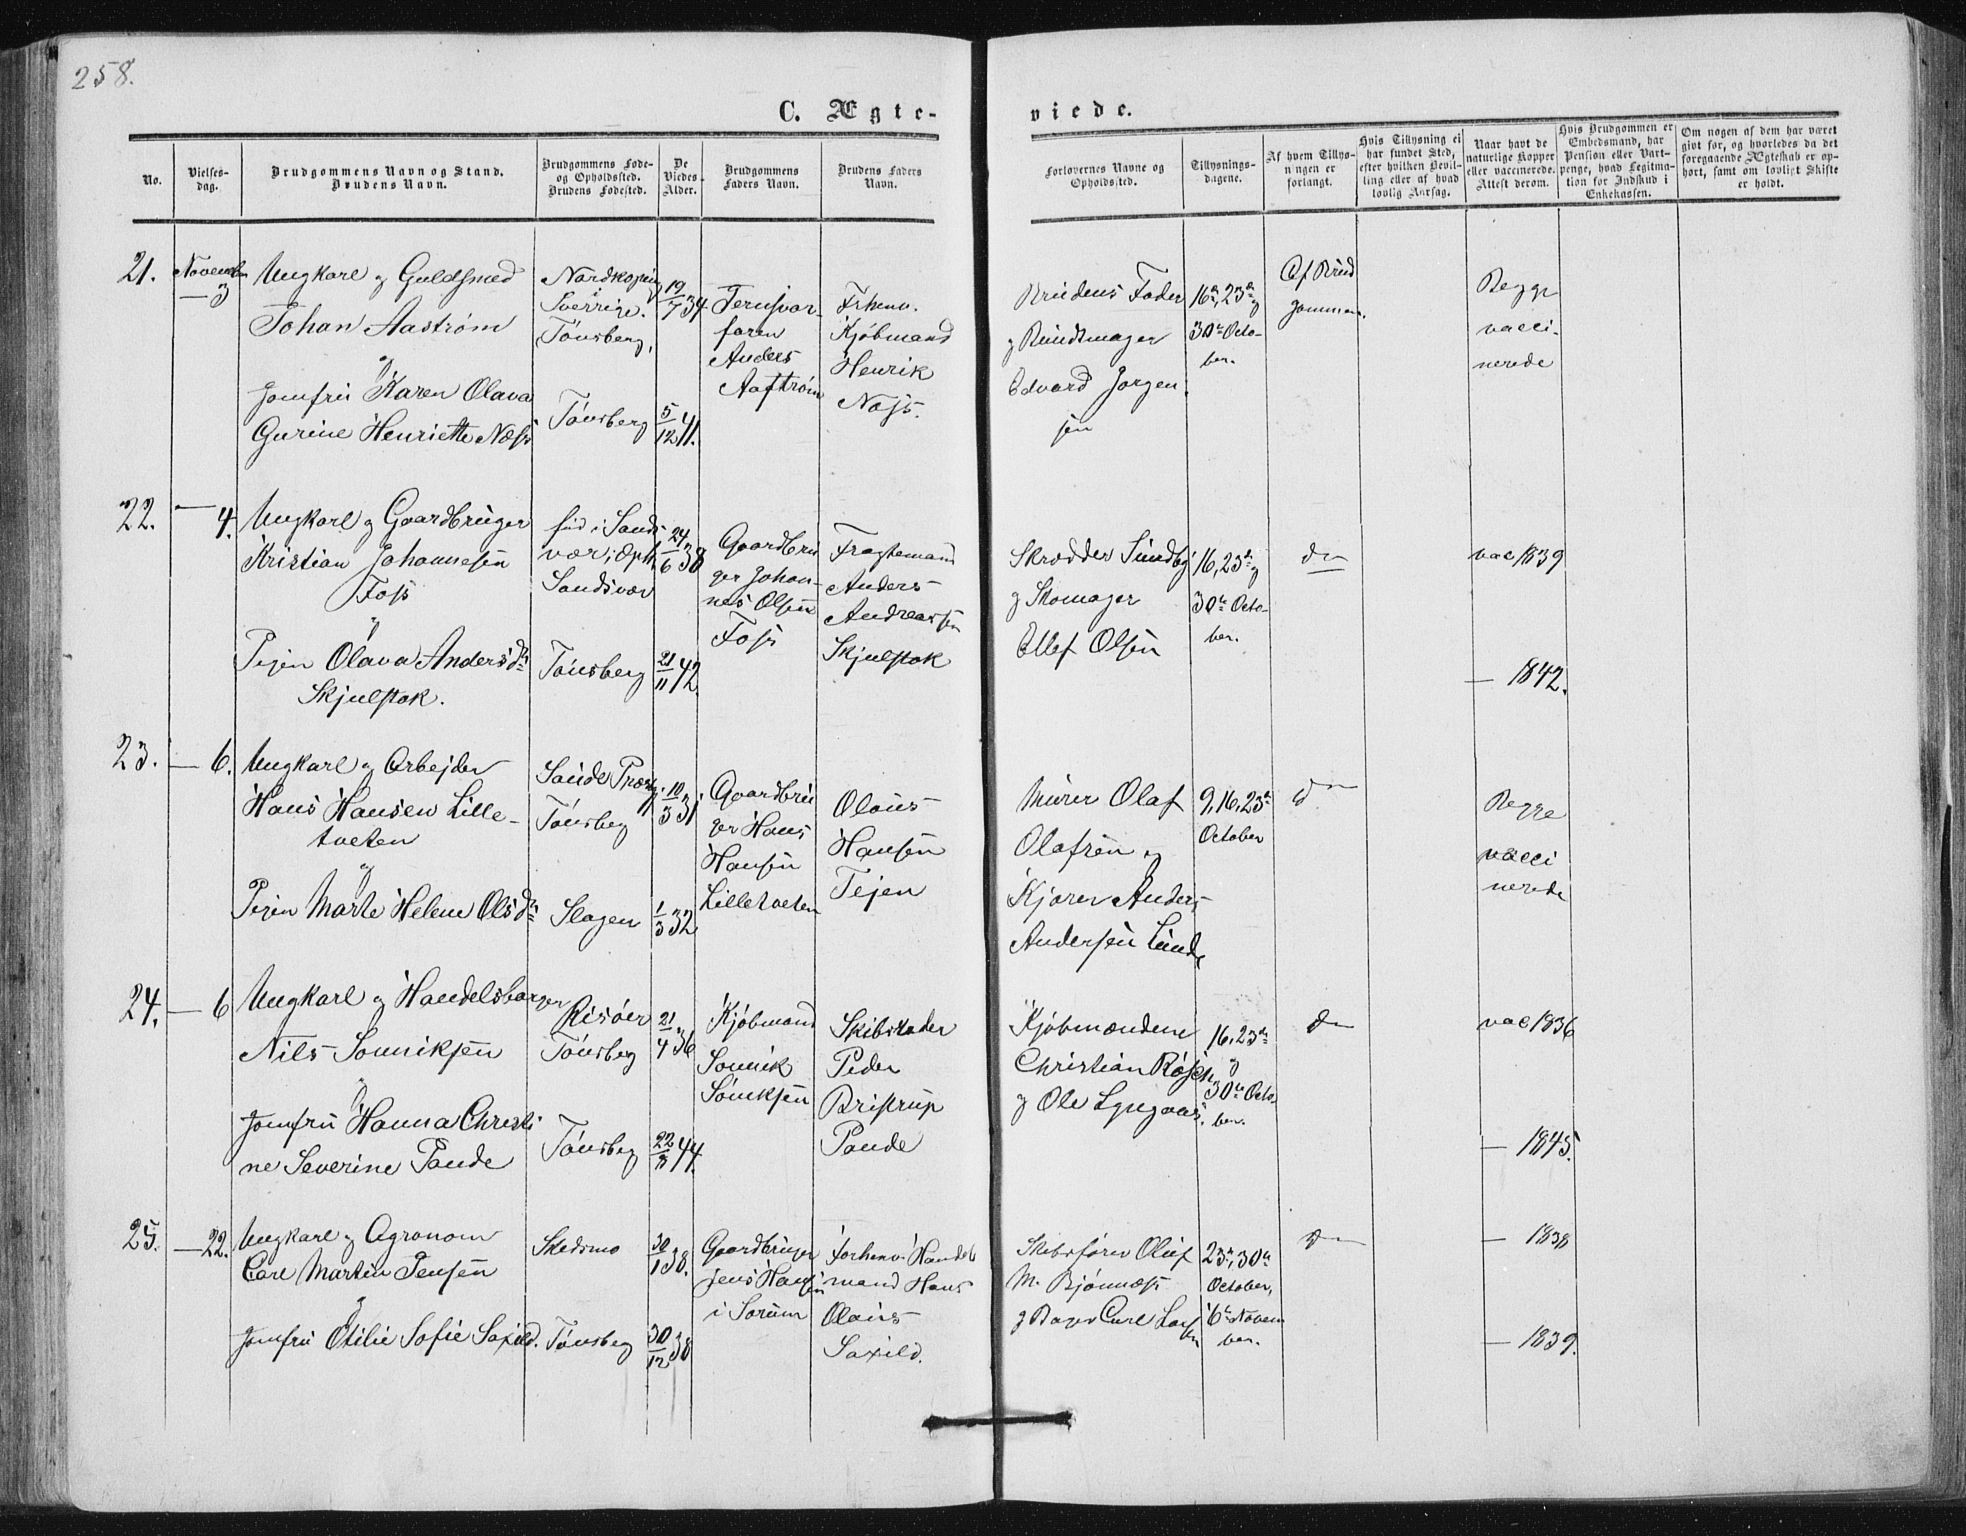 258.
C. Ægte-
viede.
No.
Vielses-
dag.
Brudgommens Navn og Stand.
Brudens Navn.
Brudgommens Føde-
og Opholdssted.
Brudens Fødested.
De
Viedes
Alder.
Brudgommens
Faders Navn.
Brudens Faders
Navn.
Forlovernes Navne og
Opholdssted.
Tillysnings-
dagene.
Af hvem Tillys-
ningen er
forlangt.
Hvis Tillysning ei
har fundet Sted,
efter hvilken Bevil-
ling eller af hvad
lovlig Aarsag.
Naar havt de
naturlige Kopper
eller vaccinerede.
Attest derom.
Hvis Brudgommen er
Embedsmand, har
Pension eller Vart-
penge, hvad Legitima-
tion for Indskud i
Enkekassen.
Om nogen af dem har været
givt for, og hvorledes da det
foregaaende Ægteskab er op-
hørt, samt om lovligt Skifte
er holdt.
21.
November
— 3
Ungkarl og Guldsmed
Johan Aastrøm
og
Jomfru Karen Olava
Gurine Henriette Næss
Nordkøping
Sverrige.
Tønsberg,
Tønsberg
19/7 34
5/12 41.
Anders
Aastrøm
Kjøbmand
Henrik
Næss.
Brudens Fader
og Bundtmager
Edvard Jørgen
sen
16de, 23de og
30te Octo-
ber.
Af Brud
gommen.
Begge
vacci-
nerede
22.
— 4.
Ungkarl og Gaardbruger
Kristian Johannesen
Foss
og
Pigen Olava Andersdtr
Skjulstok.
fød i Sands
vær; Oph.
Sandsvær
Tønsberg
24/6 38
21/11 42.
Gaardbru
ger Johan-
nes Olsen
Foss
Fragtemand
Anders
Andreassen
Skjulstok
Skrædder Sundby
og Skomager
Ellef Olsen
16, 23de og
30te Octo-
ber.
do
vac 1839
— 1842.
23.
— 6.
Ungkarl og Arbejder
Hans Hansen Lille-
tveten
og
Pigen Marte Helene Olsdtr
Sande Præstg.
Tønsberg
Slagen
10/3 31
1/3 32
Gaardbru
ger Hans
Hansen
Lilletveten
Olaus
Hansen
Tejen
Murer Olaf
Olafsen og
Kjører Anders
Andersen Lunde
9, 16, 23de
October
do
Begge
vacci
nerede
24.
— 6
Ungkarl og Handelsborger
Nils Sonniksen
og
Jomfru Hanna Christi
ne Severine Paude
Risøer
Tønsberg
Tønsberg
21/4 36
22/3 44.
Kjøbmand
Sonnik
Sonniksen
Skibsreder
Peder
Bristrup
Paude
Kjøbmændene
Christian Røsch
og Ole Lyngaas.
16, 23de
og
30te Octo-
ber.
do
vac 1836
— 1845.
25.
— 22.
Ungkarl og Agronom
Carl Martin Jensen
og
Jomfru Otilie Sofie Saxild.
Skedsmo
Tønsberg
30/1 38.
30/12 38
Gaardbruger
Jens Hansen
i Sørum
forhenv. Handels
mand Hans
Olaus
Saxild.
Skibsfører Oluf
M. Bjønnæss
og Bager Carl Lar
sen
23de, 30te
October,
6te Novem
ber.
do
— 1838
— 1839.